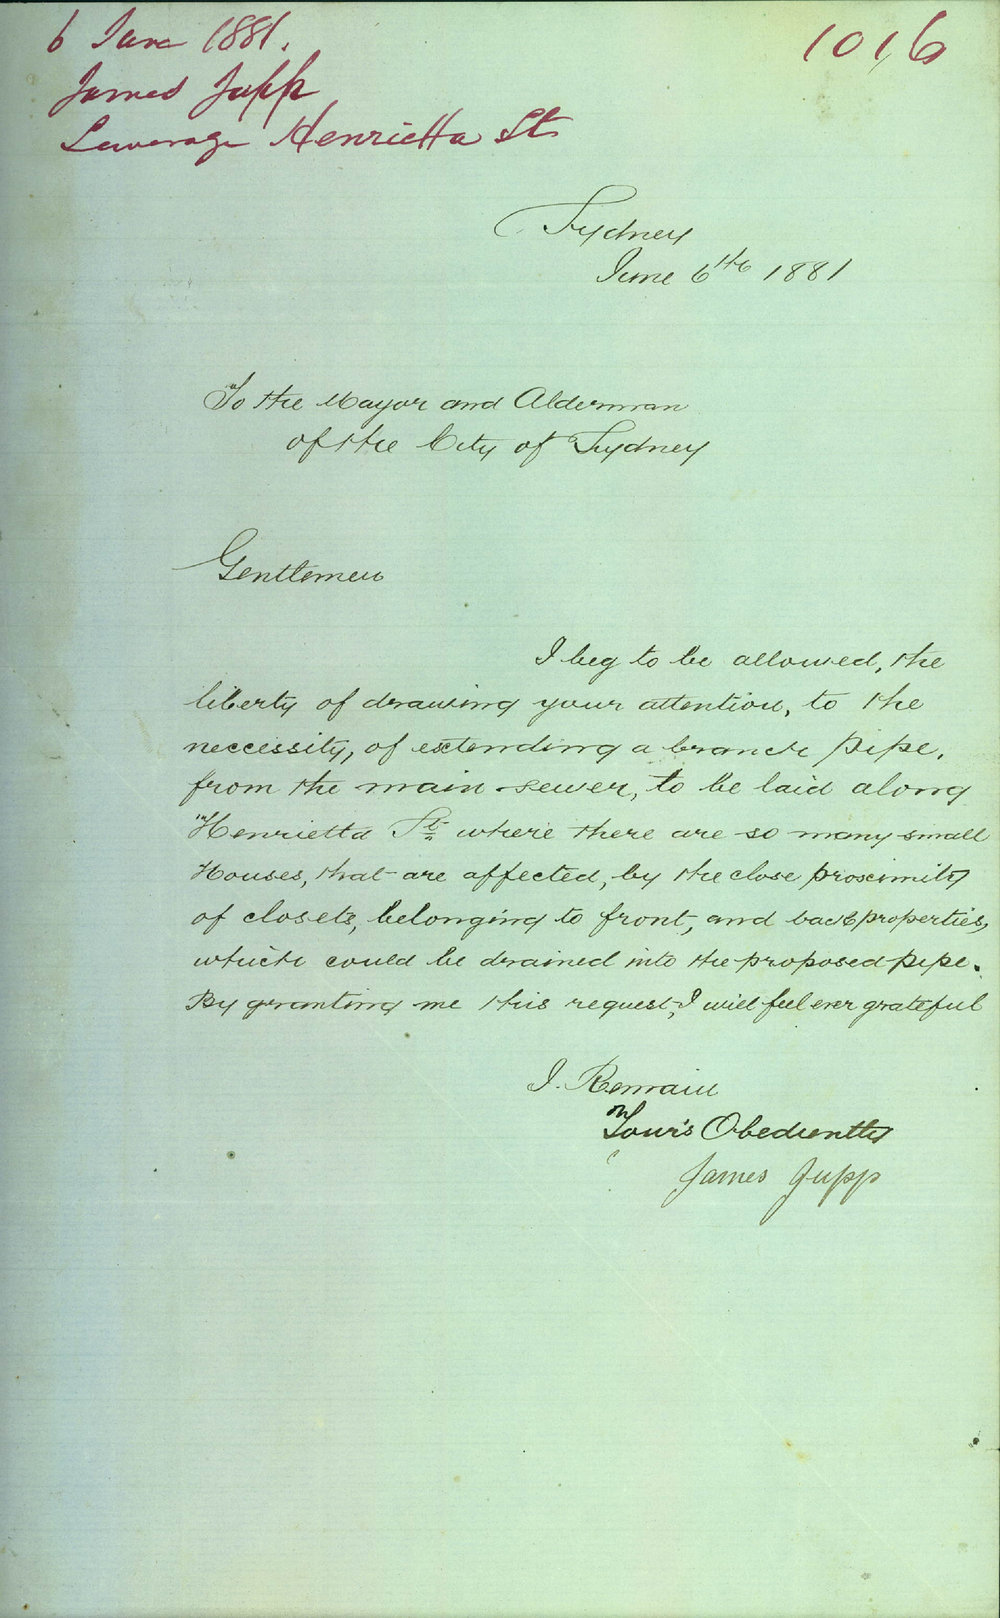 6 June 1881.
1016
James Jupp
Sewerage Henrietta St
Sydney
June 6th 1881
To the Mayor and Alderman
of the City of Sydney
Gentlemen
I beg to be allowed, the
liberty of drawing your attention, to the
neccessity, of extending a branch pipe,
from the main sewer, to be laid along
Henrietta St where there are so many small
Houses, that are affected, by the close proximity
of closets, belonging to front, and back properties,
which could be drained into the proposed pipe.
By granting me this request, I will feel ever grateful
I. Remain
Your's Obediently
James Jupp